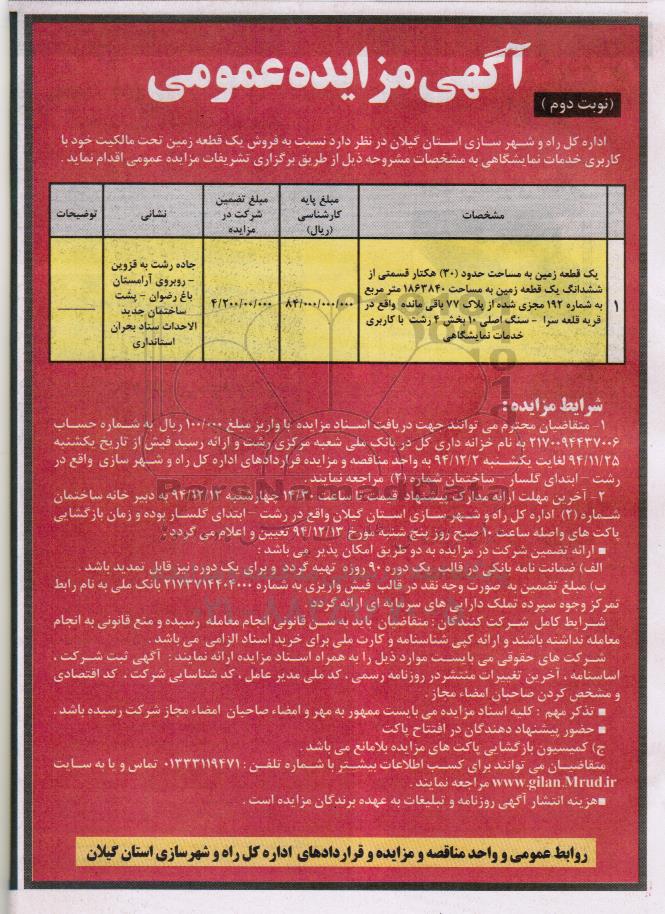 آگهی مزایده عمومی
(نوبت دوم)
اداره کل راه و شهر سازی استان گیلان در نظر دارد نسبت به فروش یک قطعه زمین تحت مالکیت خود با
کاربری خدمات نمایشگاهی به مشخصات مشروحه ذیل از طریق برگزاری تشریفات مزایده عمومی اقدام نماید .
مشخصات
مبلغ پایه
کارشناسی
(ریال)
مبلغ تضمین
شرکت در
مزایده
نشانی
توضیحات
۱
یک قطعه زمین به مساحت حدود (۳۰) هکتار قسمتی از
ششدانگ یک قطعه زمین به مساحت ۱۸۶۳۸۴۰ متر مربع
به شماره ۱۹۲ مجزی شده از پلاک ۷۷ باقی مانده واقع در
قریه قلعه سرا - سنگ اصلی ۱۰ بخش ۴ رشت با کاربری
خدمات نمایشگاهی
۸۴/۰۰۰/۰۰۰/۰۰۰
۴/۲۰۰/۰۰/۰۰۰
جاده رشت به قزوین
- روبروی آرامستان
باغ رضوان - پشت
ساختمان جدید
الاحداث ستاد بحران
استانداری
شرایط مزایده :
۱- متقاضیان محترم می توانند جهت دریافت اسناد مزایده با واریز مبلغ ۱۰۰/۰۰۰ ریال به شماره حساب
۲۱۷۰۰۹۴۴۳۷۰۰۶ به نام خزانه داری کل در بانک ملی شعبه مرکزی رشت و ارائه رسید فیش از تاریخ یکشنبه
۹۴/۱۱/۲۵ لغایت یکشنبه ۹۴/۱۲/۲ به واحد مناقصه و مزایده قراردادهای اداره کل راه و شهر سازی واقع در
رشت - ابتدای گلسار - ساختمان شماره (۲) مراجعه نمایند .
۲- آخرین مهلت ارائه مدارک پیشنهاد قیمت تا ساعت ۱۴/۳۰ چهارشنبه ۹۴/۱۲/۱۲ به دبیر خانه ساختمان
شماره (۲) اداره کل راه و شهر سازی استان گیلان واقع در رشت - ابتدای گلسار بوده و زمان بازگشایی
پاکت های واصله ساعت ۱۰ صبح روز پنج شنبه مورخ ۹۴/۱۲/۱۳ تعیین و اعلام می گردد .
■ ارائه تضمین شرکت در مزایده به دو طریق امکان پذیر می باشد :
الف) ضمانت نامه بانکی در قالب یک دوره ۹۰ روزه تهیه گردد و برای یک دوره نیز قابل تمدید باشد .
ب) مبلغ تضمین به صورت وجه نقد در قالب فیش واریزی به شماره ۲۱۷۳۷۱۴۴۰۴۰۰۰ بانک ملی به نام رابط
تمرکز وجوه سپرده تملک دارایی های سرمایه ای ارائه گردد .
شرایط کامل شرکت کنندگان : متقاضیان باید به سن قانونی انجام معامله رسیده و منع قانونی به انجام
معامله نداشته باشند و ارائه کپی شناسنامه و کارت ملی برای خرید اسناد الزامی می باشد .
شرکت های حقوقی می بایست موارد ذیل را به همراه اسناد مزایده ارائه نمایند : آگهی ثبت شرکت ،
اساسنامه ، آخرین تغییرات منتشردر روزنامه رسمی ، کد ملی مدیر عامل ، کد شناسایی شرکت ، کد اقتصادی
و مشخص کردن صاحبان امضاء مجاز .
■ تذکر مهم : کلیه اسناد مزایده می بایست ممهور به مهر و امضاء صاحبان امضاء مجاز شرکت رسیده باشد .
■ حضور پیشنهاد دهندگان در افتتاح پاکت
ج) کمیسیون بازگشایی پاکت های مزایده بلامانع می باشد .
متقاضیان می توانند برای کسب اطلاعات بیشتر با شماره تلفن : ۰۱۳۳۳۱۱۹۴۷۱ تماس و یا به سایت
www.gilan.Mrud.ir مراجعه نمایند .
■هزینه انتشار آگهی روزنامه و تبلیغات به عهده برندگان مزایده است .
روابط عمومی و واحد مناقصه و مزایده و قراردادهای اداره کل راه و شهرسازی استان گیلان